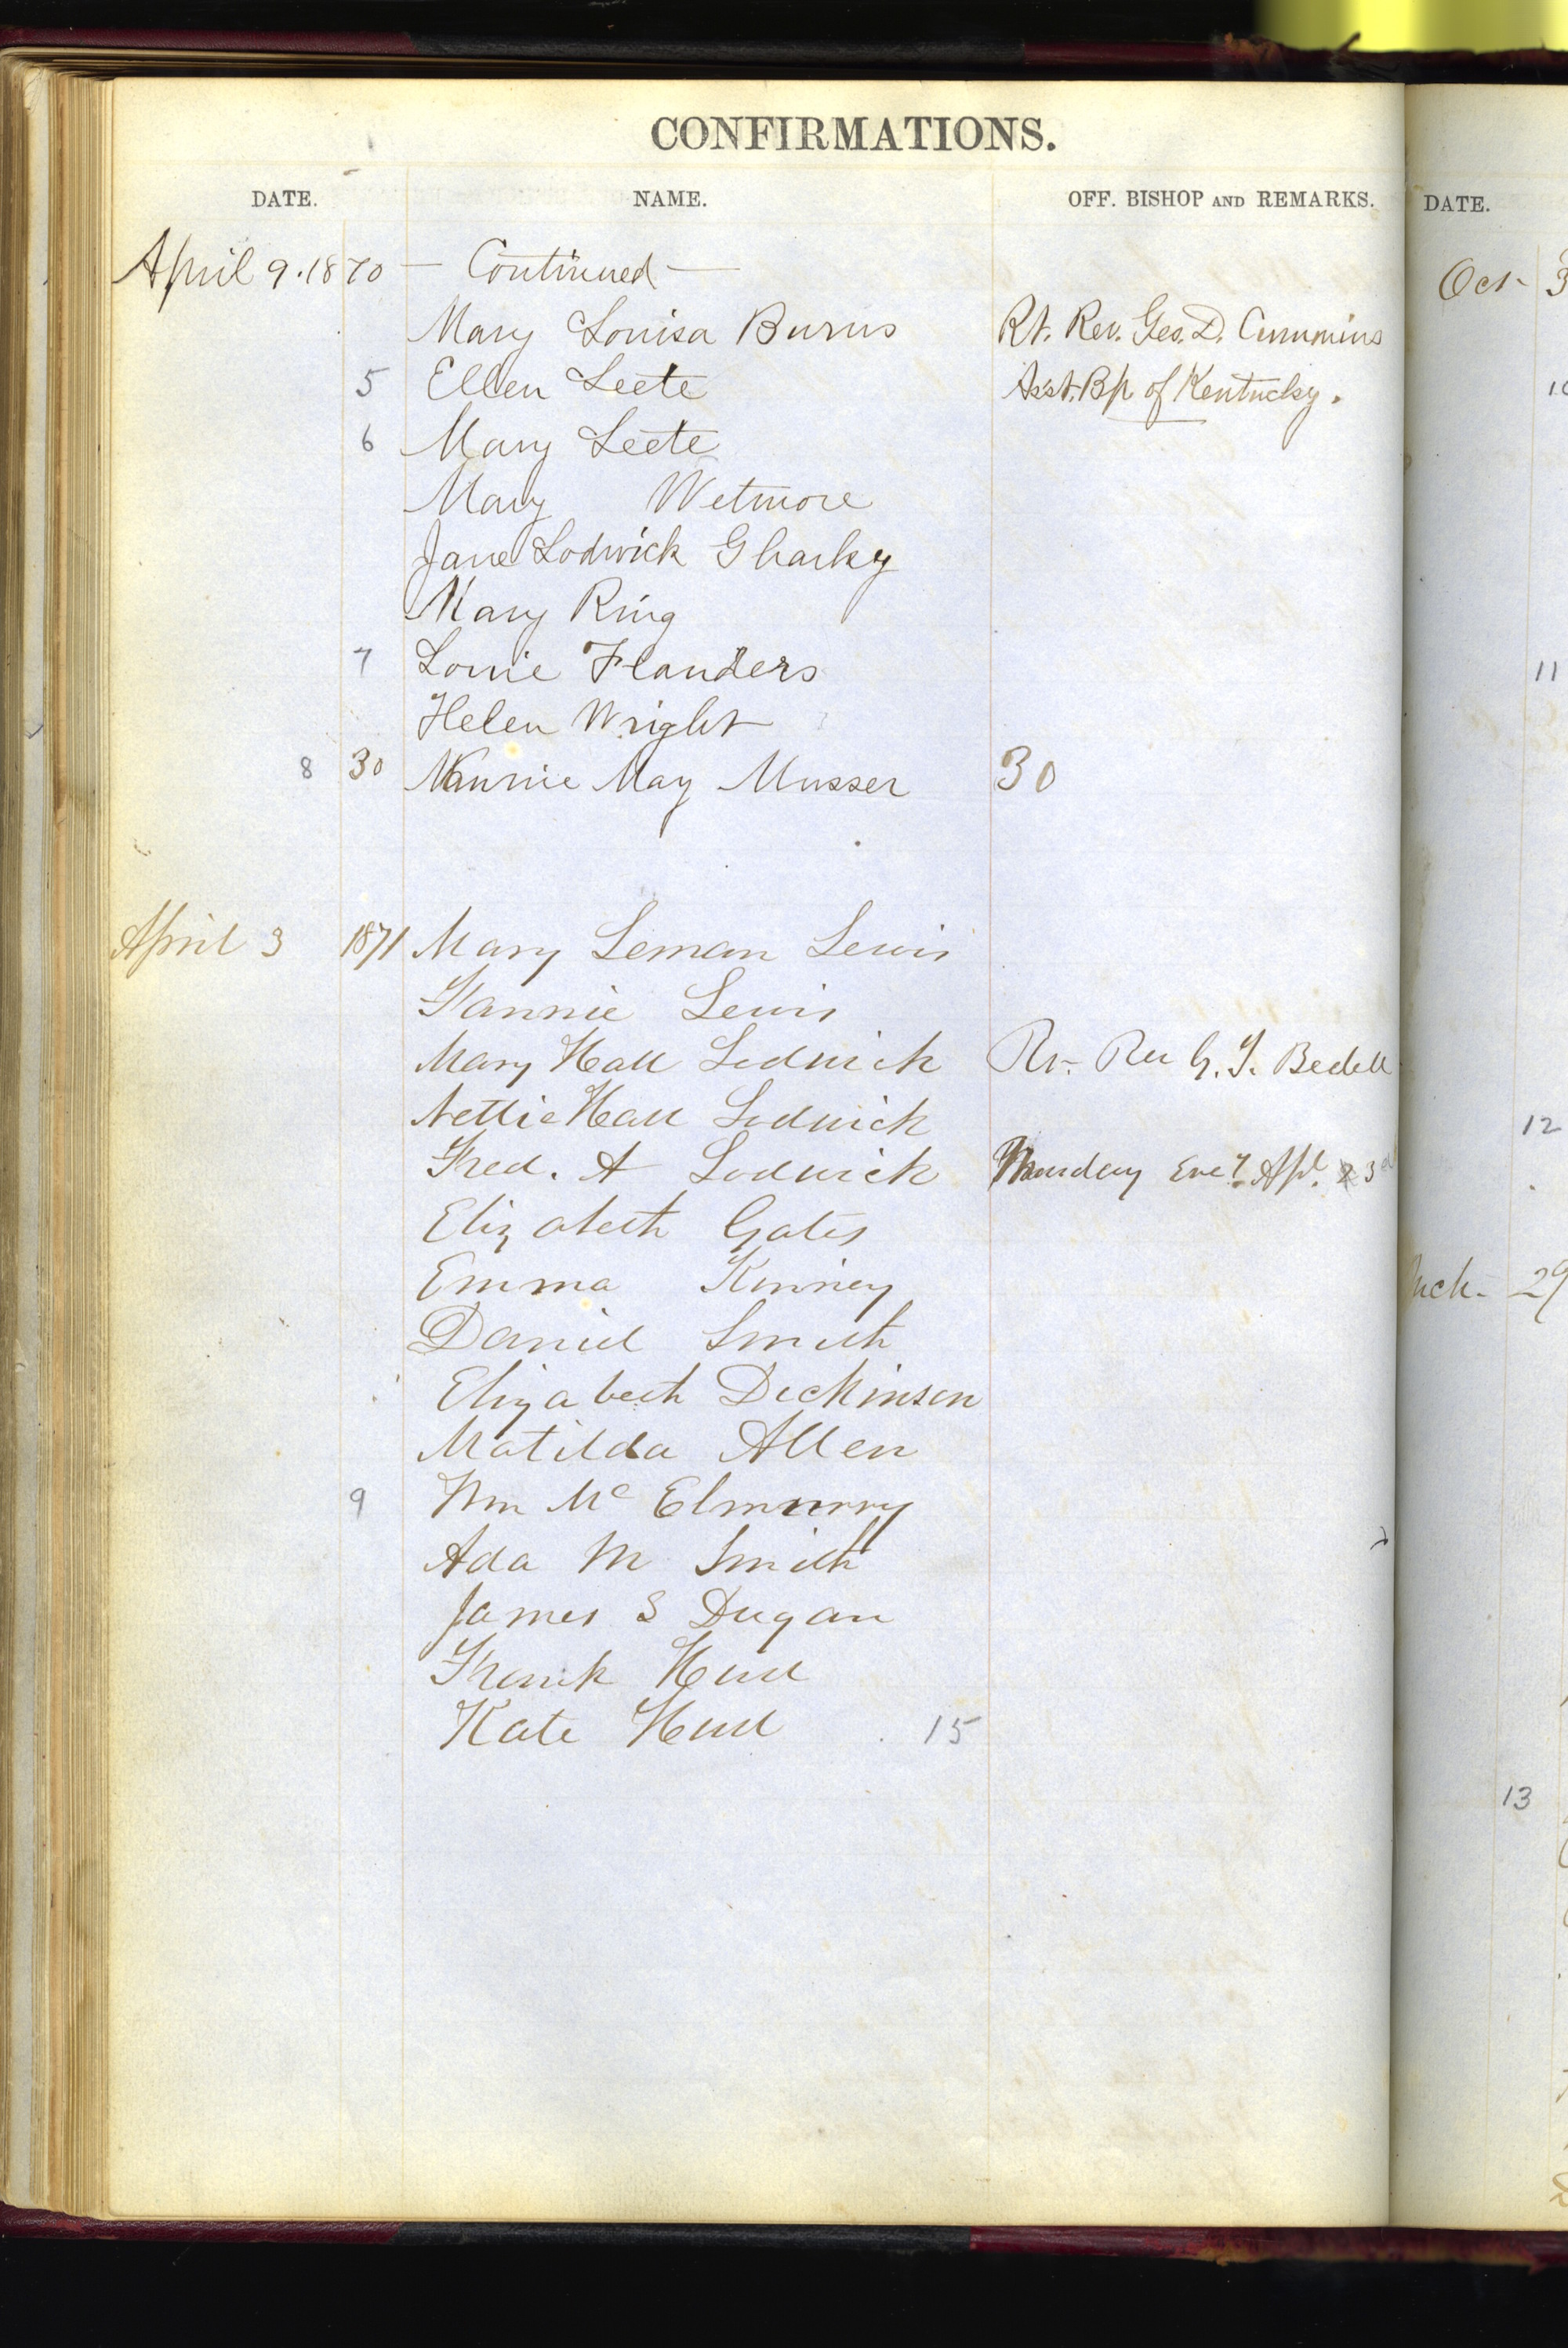 CONFIRMATIONS.
DATE. NAME. OFF. BISHOP AND REMARKS. DATE.
April 9. 1870 — Continued — Oct- 3
Mary Louisa Burns Rt. Rev. Geo. D. Cummins
5 Ellen Leete Asst. Bp. of Kentucky.
6 Mary Leete
Mary Wetmore
Jane Lodwick Gharky
Mary Ring
7 Louie Flanders 11
Helen Wright
8 30 Nannie May Musser 30
April 3 1871 Mary Leman Lewis
Fannie Lewis
Mary Hall Lodwick Rt- Rev G. T. Bedell
Nettie Hall Lodwick 12
Fred. A Lodwick Monday Eve'g. Apl. 3d
Elizabeth Gates
Emma Kinney 29
Daniel Smith
Elizabeth Dickinson
Matilda Allen
9 Wm Mc Elmurry
Ada M Smith
James S Dugan
Frank Hurd
Kate Hurd 15
13